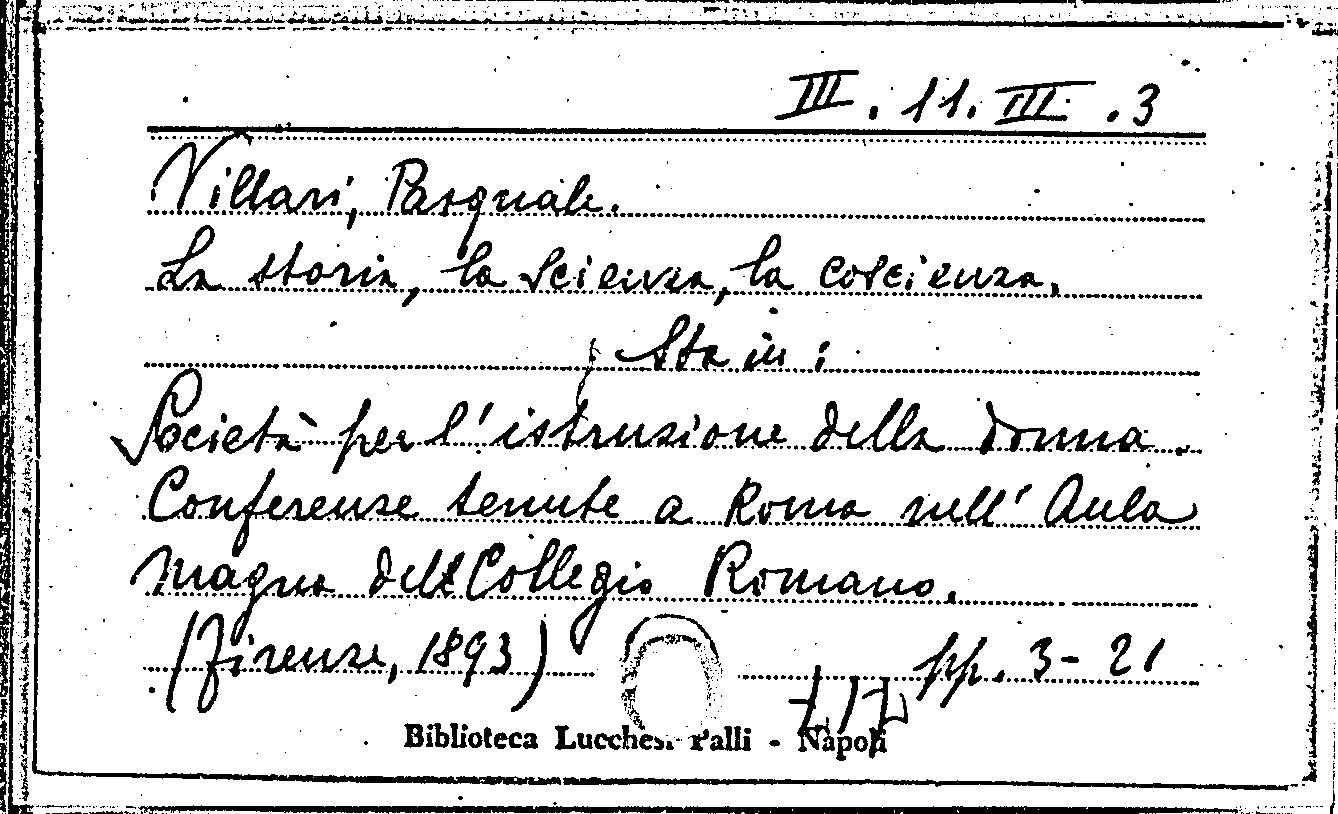 III. 11. III. 3
Villari, Pasquale.
La storia, la scienza, la coscienza.
Sta in:
Società per l'istruzione della donna.
Conferenze tenute a Roma nell'Aula
Magna del Collegio Romano.
(Firenze, 1893) pp. 3-21
Biblioteca Lucchesi Palli - Napoli